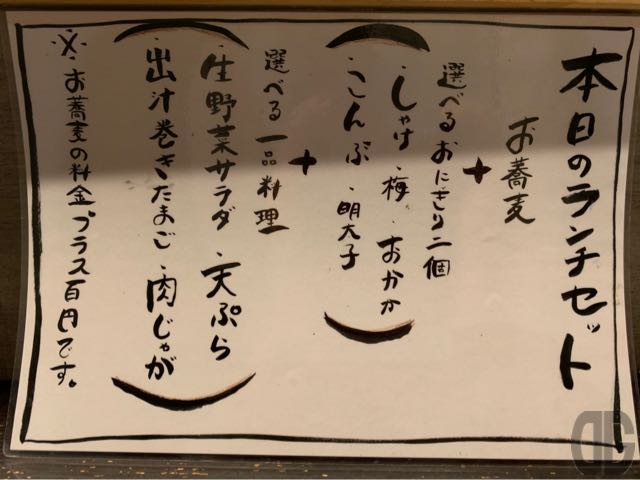 本日のランチセット
お蕎麦
+
選べるおにぎり二個
(しゃけ・梅・おかか
・こんぶ・明太子)
+
選べる一品料理
(生野菜サラダ・天ぷら
・出汁巻きたまご・肉じゃが)
※お蕎麦の料金プラス百円です。